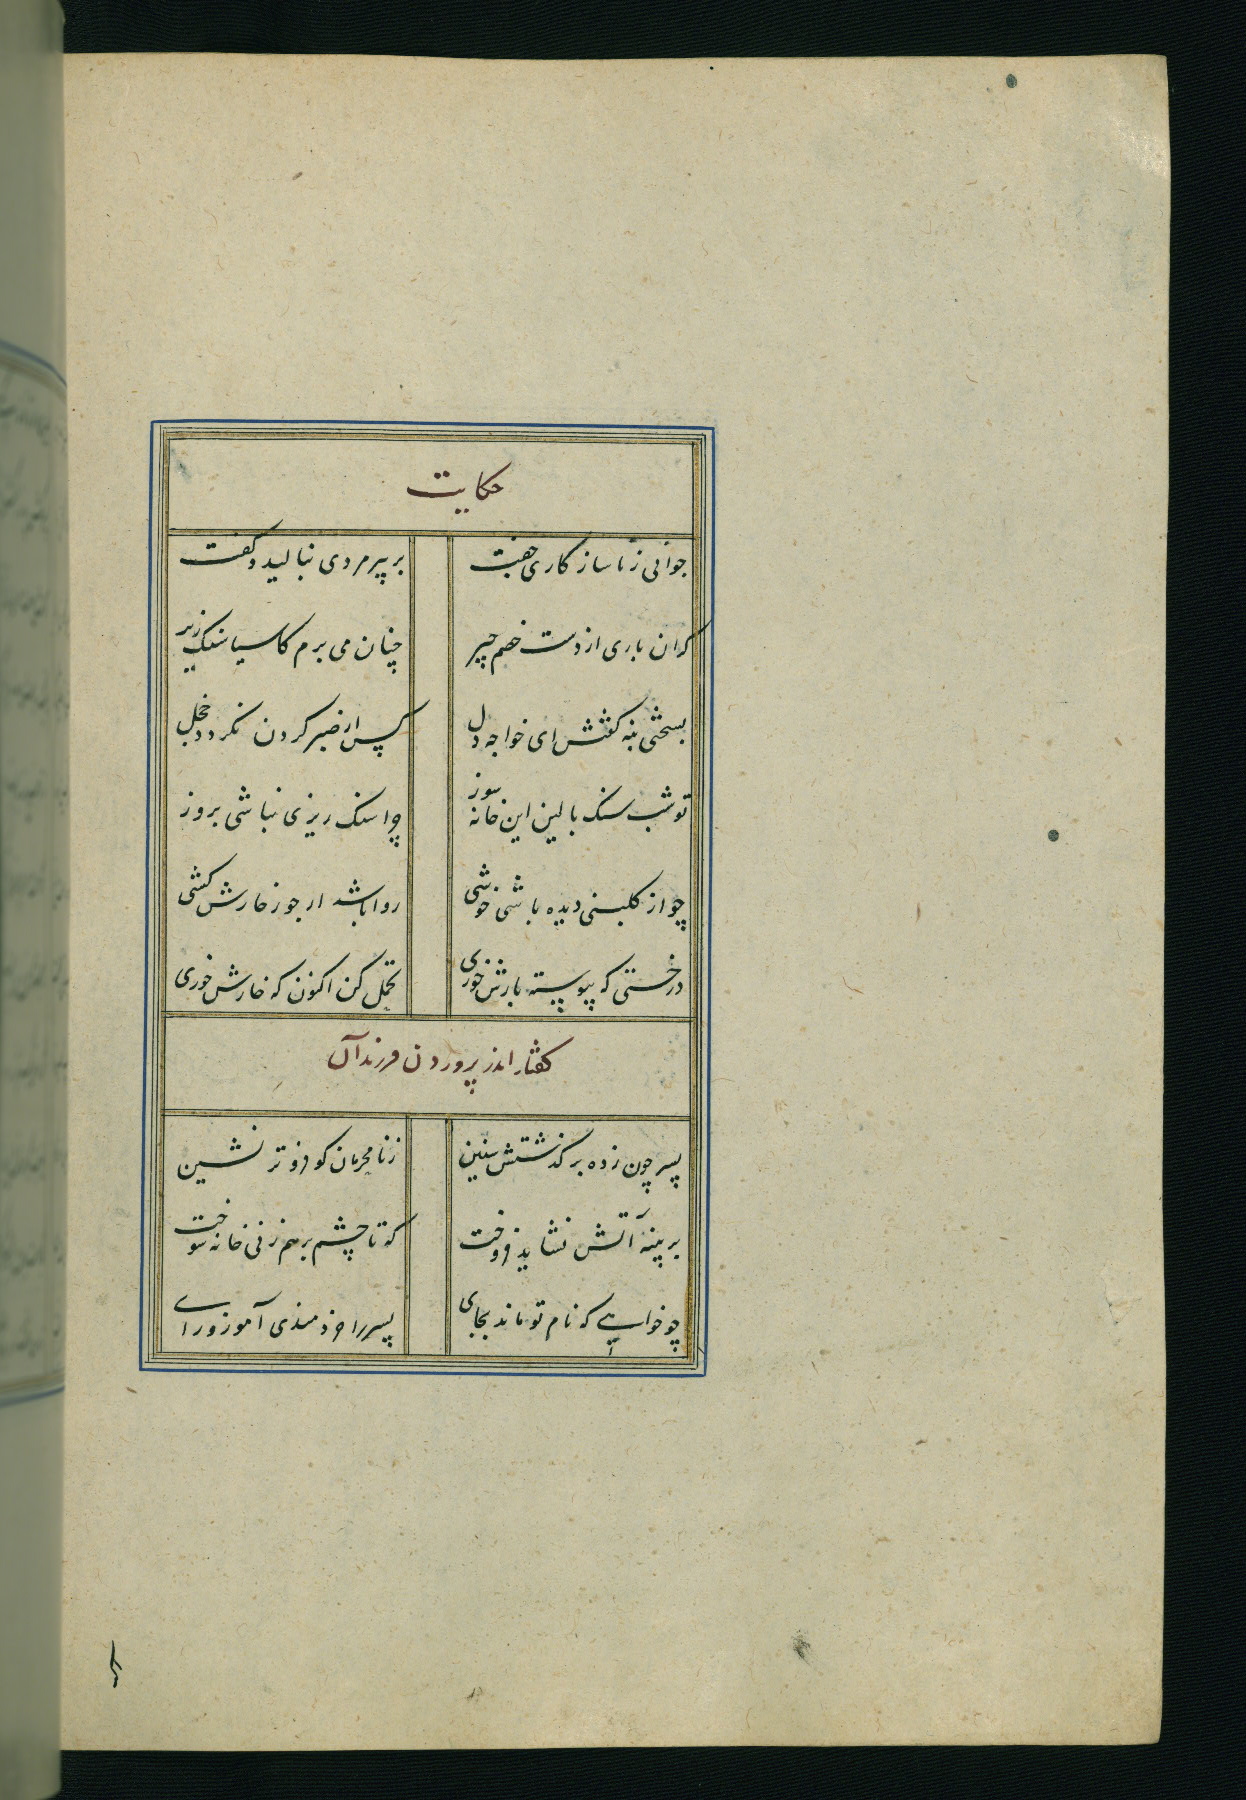 حکایت
جوانی ز ناسازکاری جفت بر پیرمردی بنالید و کفت
کران باری از دست خصم چیر چنان می برم کاسیا سنک زیر
بسختی بنه کفتش ای خواجه دل کس از صبر کردن نکردد خجل
تو شب سنک بالین این خانه سوز چرا سنک ریزی نباشی بروز
چو از کلبنی دیده باشی خوشی روا باشد ار جور خارش کشی
درختی که پیوسته بارش خوری تحمل کن اکنون که خارش خوری
کفتار اندر پروردن فرزندان
پسر چون ز ده بر کذشتش سنین ز نامحرمان کو فروتر نشین
بر پنبه آتش نشاید فروخت که تا چشم بر هم زنی خانه سوخت
چو خواهی که نام تو ماند بجای پسر را خردمندی آموز و رای